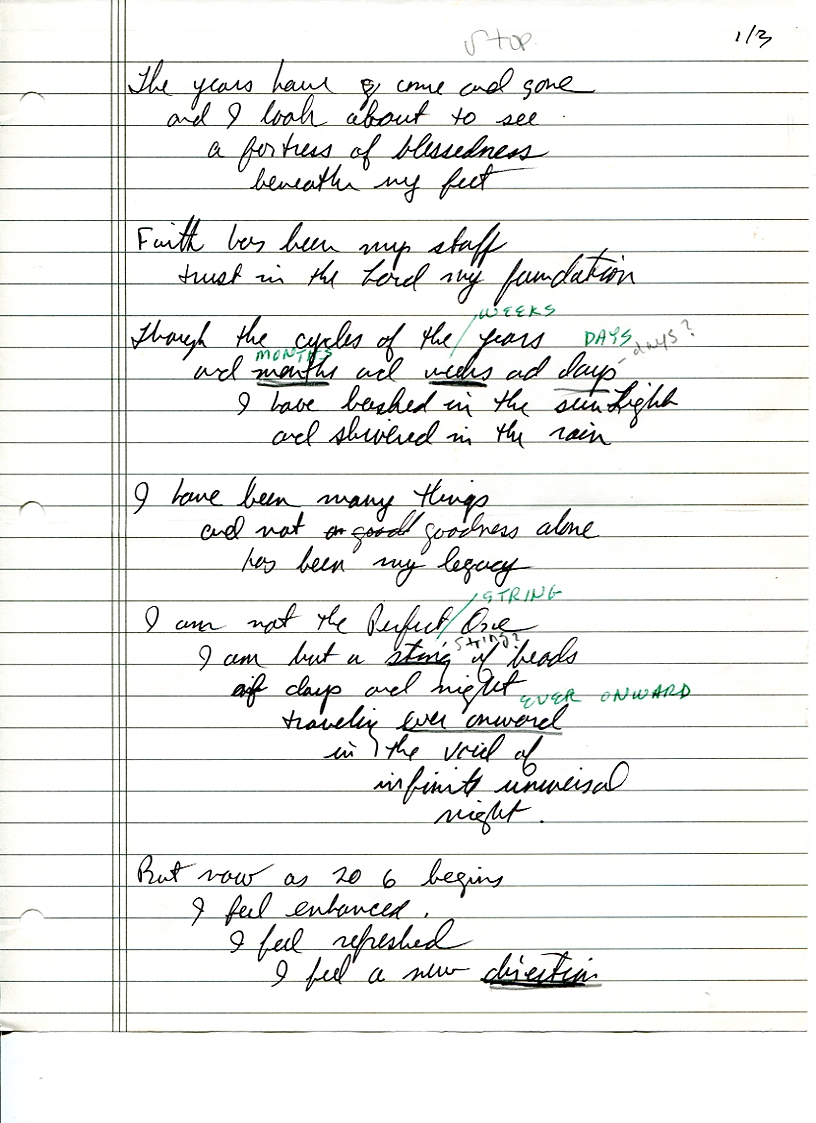 stop
1/3
The years have come and gone
and I look about to see
a fortress of blessedness
beneath my feet
Faith has been my staff
trust in the Lord my foundation
WEEKS
Through the cycles of the / years DAYS
MONTHS
and months and weeks and days - days?
I have basked in the sunlight
and shivered in the rain
I have been many things
and not or good goodness alone
has been my legacy
STRING
I am not the Perfect / One
string?
I am but a string of beads
of days and night
EVER ONWARD
traveling ever onward
in the void of
infinite universal
night.
But now as 20 6 begins
I feel enhanced,
I feel refreshed
I feel a new direction